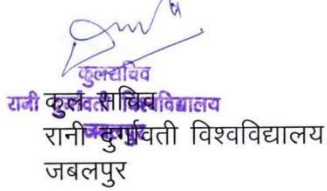 कुलसचिव
रानी दुर्गावती विश्वविद्यालय
जबलपुर
कुल सचिव
रानी दुर्गावती विश्वविद्यालय
जबलपुर